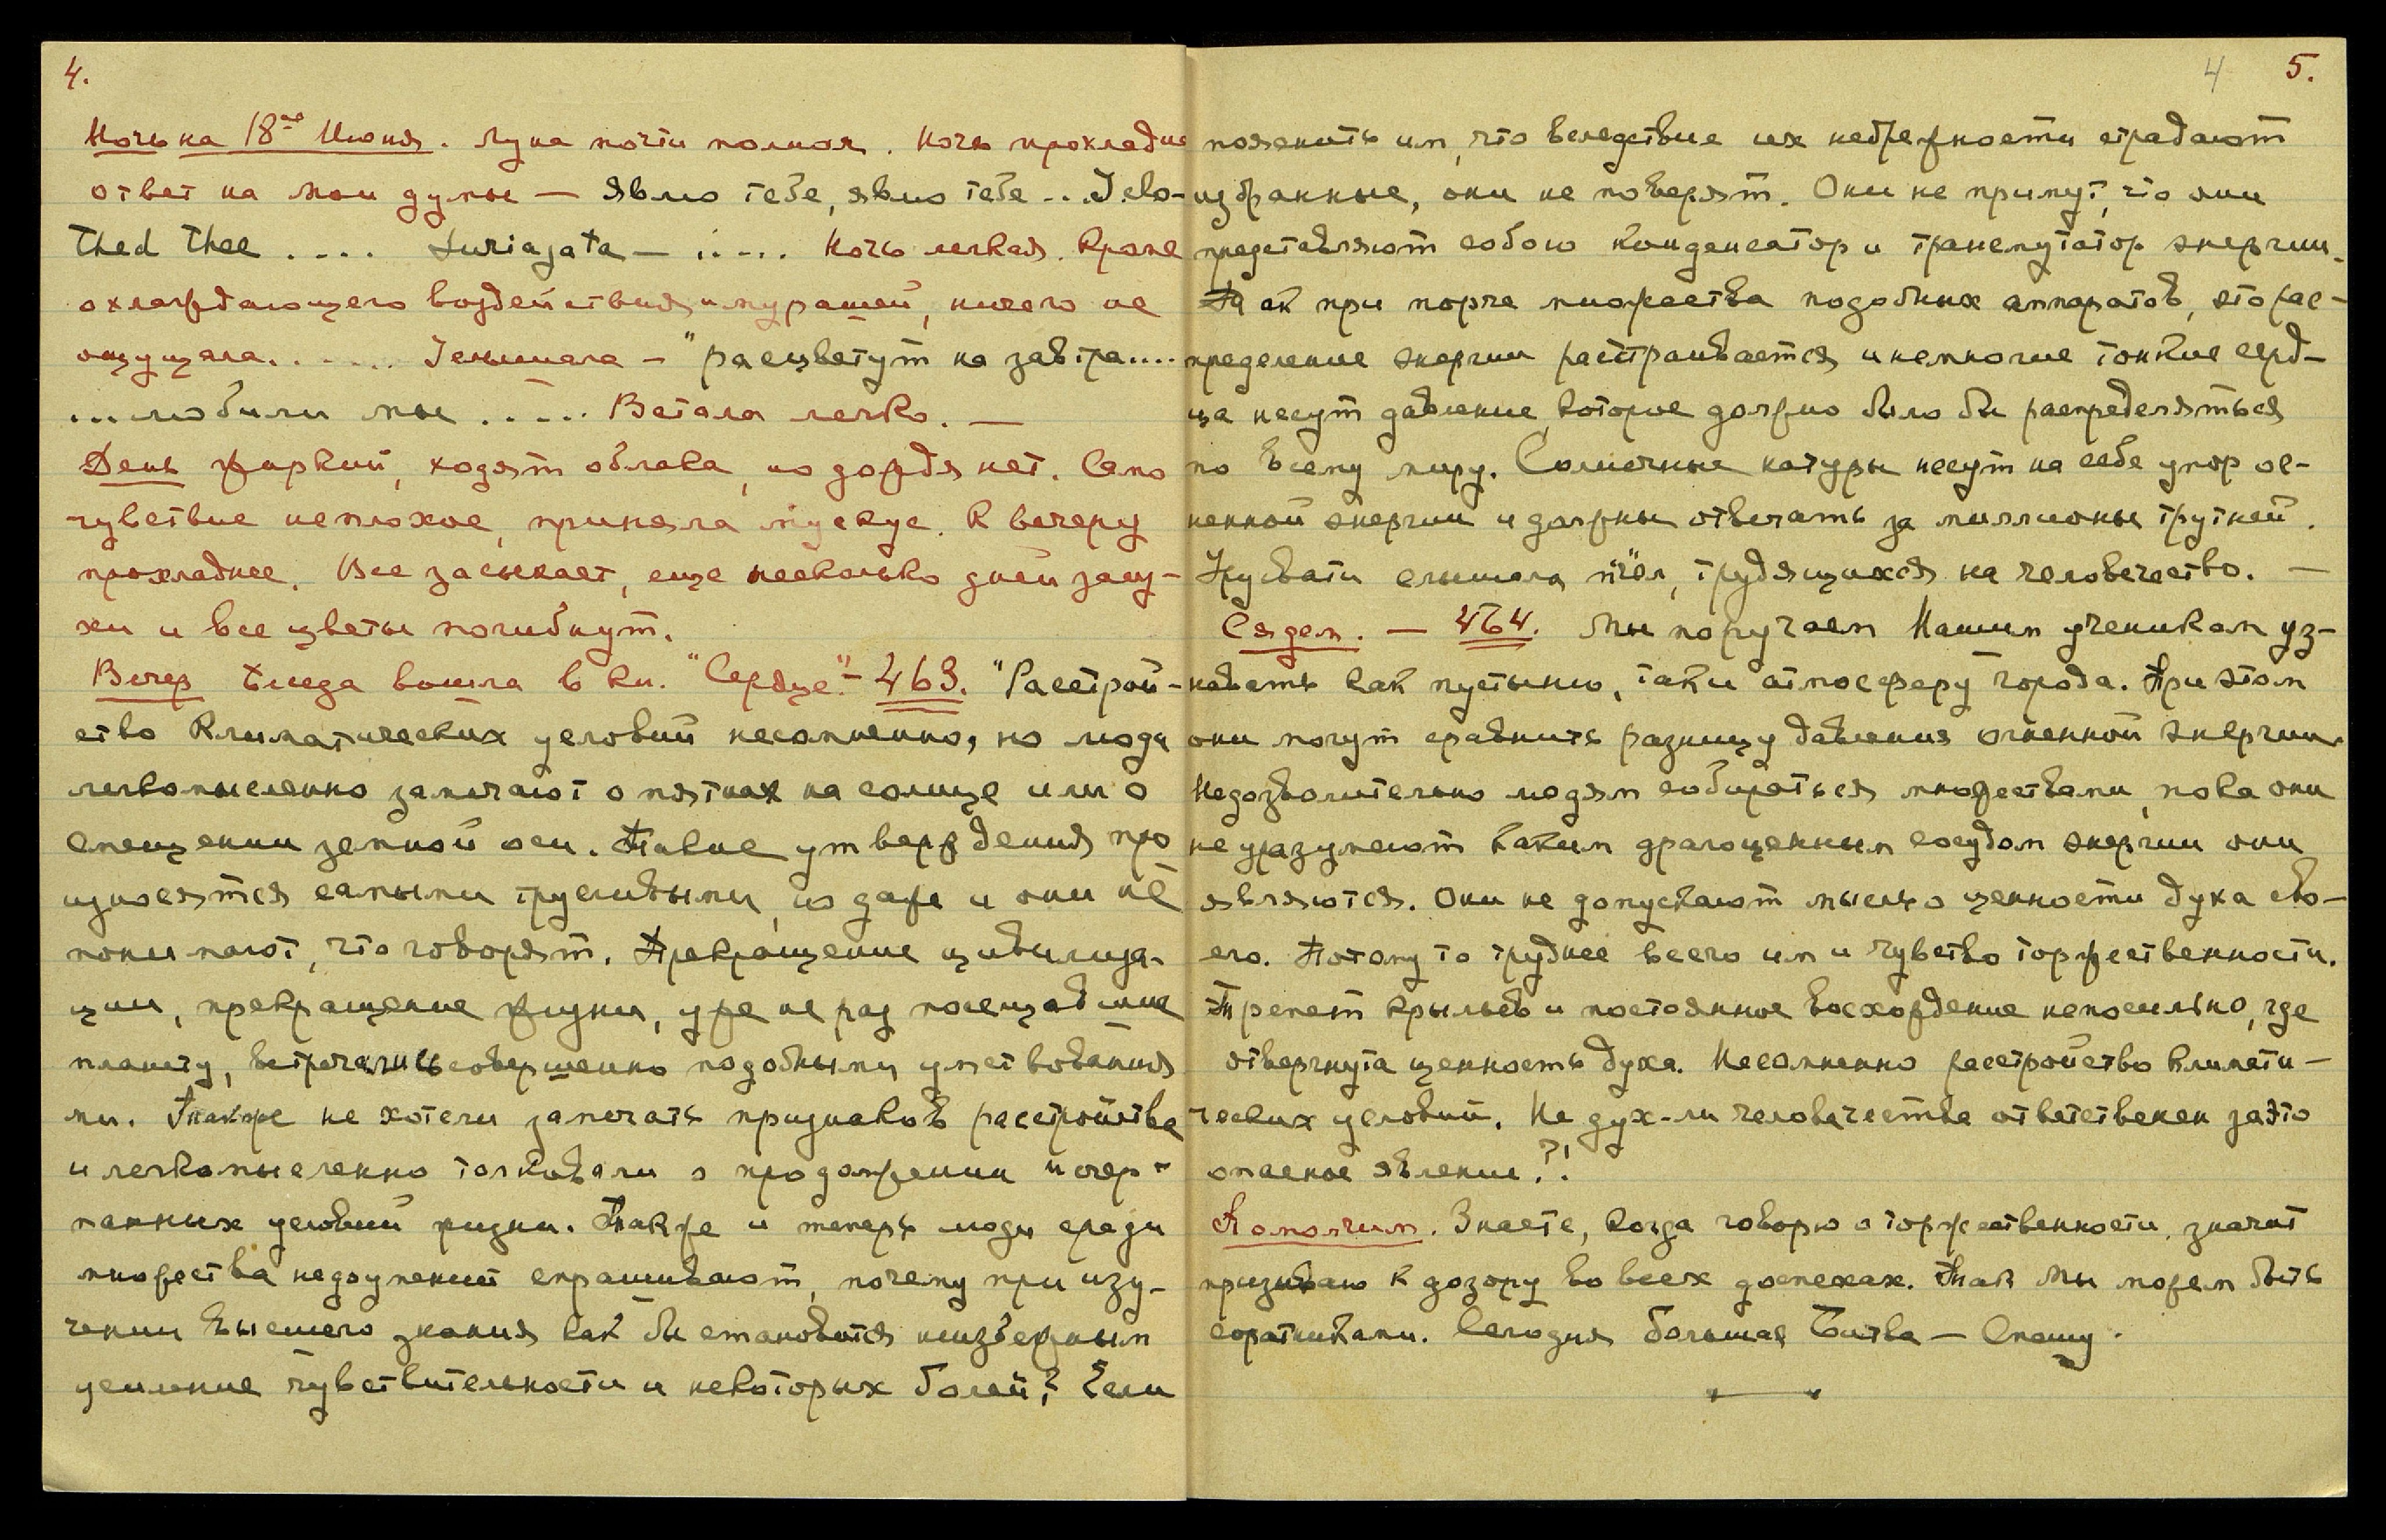 4.
Ночь на 18ое Июня. Луна почти полная. Ночь прохладна
ответ на мои думы — явлю тебе, явлю тебе .. I clo-
thed thee .... Suriajata — ..... Ночь легкая. Кроме
охлаждающего воздействия и мурашей, ничего не
ощущала. ..... Услышала — "расцветут на завтра....
...любили мы ..... Встала легко. —
День жаркий, ходят облака, но дождя нет. Само
чувствие неплохое, приняла мускус. К вечеру
прохладнее. Все засыхает, еще несколько дней засу-
хи и все цветы погибнут.
Вечер Беседа вошла в кн. "Сердце". — 463. "Расстрой-
ство климатических условий несомненно, но люди
легкомысленно замечают о пятнах на солнце или о
смещении земной оси. Такие утверждения про
износятся самыми трусливыми, но даже и они не
понимают, что говорят. Прекращение цивилиза-
ции, прекращение жизни, уже не раз посещавшие
планету, встречались совершенно подобными умствования
ми. Также не хотели замечать признаков расстройства
и легкомысленно толковали о продолжении исчер-
панных условий жизни. Также и теперь люди среди
множества недоумений спрашивают, почему при изу-
чении Высшего знания как бы становится неизбежным
усиление чувствительности и некоторых болей? Если
4 5.
пояснить им, что вследствие их небрежности страдают
избранные, они не поверят. Они не примут, что они
представляют собою конденсатор и трансмутатор энергии.
Так при порче множества подобных аппаратов, это рас-
пределение энергии расстраивается и немногие тонкие серд-
ца несут давление, которое должно было бы распределяться
по всему миру. Солнечные натуры несут на себе упор ог-
ненной энергии и должны отвечать за миллионы трутней.
Урусвати слышала пчёл, трудящихся на человечество. —
Сядем. — 464. Мы поручаем Нашим ученикам уз-
навать как пустыню, так и атмосферу города. При этом
они могут сравнить разницу давления огненной энергии.
Недозволительно людям собираться множествами, пока они
не уразумеют каким драгоценным сосудом энергии они
являются. Они не допускают мысль о ценности духа сво-
его. Потому то труднее всего им и чувство торжественности.
Трепет крыльев и постоянное восхождение непосильно, где
отвергнута ценность духа. Несомненно расстройство климати-
ческих условий. Не дух-ли человечества ответственен за это
опасное явление?!
Помолчим. Знаете, когда говорю о торжественности, значит
призываю к дозору во всех доспехах. Так Мы можем быть
соратниками. Сегодня большая Битва — Спешу.